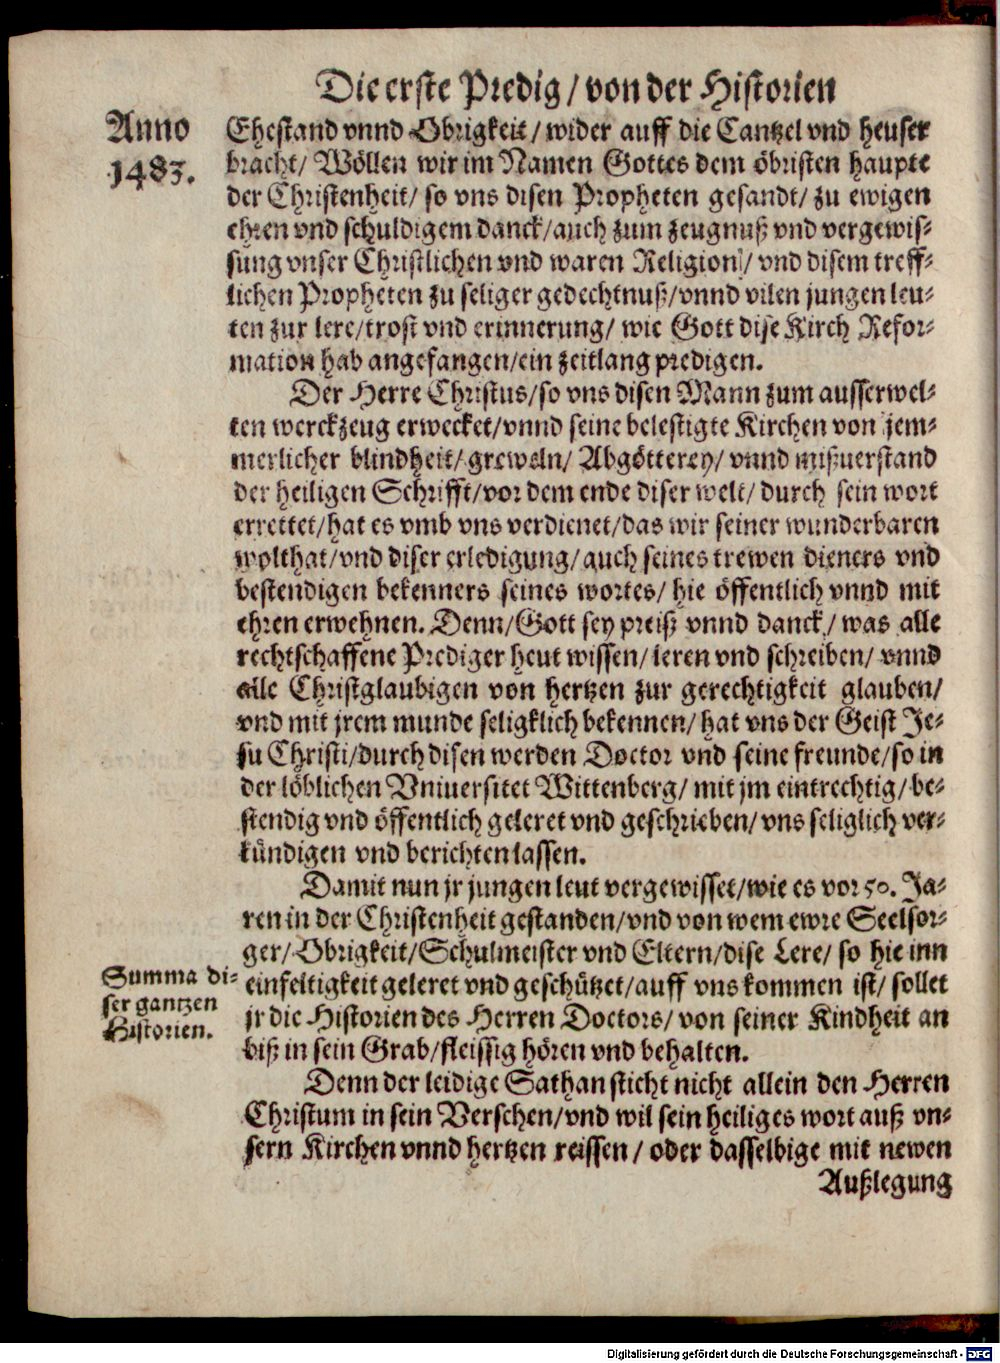 Die erste Predig / von der Historien
Anno
1483.
Ehestand vnnd Obrigkeit / wider auff die Cantzel vnd heuser
bracht / Wöllen wir im Namen Gottes dem öbristen haupte
der Christenheit / so vns disen Propheten gesandt / zu ewigen
ehren vnd schuldigem danck / auch zum zeugnuß vnd vergewis-
sung vnser Christlichen vnd waren Religion / vnd disem treff-
lichen Propheten zu seliger gedechtnuß / vnnd vilen jungen leu-
ten zur lere / trost vnd erinnerung / wie Gott dise Kirch Refor-
mation hab angefangen / ein zeitlang predigen.
Der Herre Christus / so vns disen Mann zum ausserwel-
ten werckzeug erwecket / vnnd seine belestigte Kirchen von jem-
merlicher blindheit / greweln / Abgötterey / vnnd mißuerstand
der heiligen Schrifft / vor dem ende diser welt / durch sein wort
errettet / hat es vmb vns verdienet / das wir seiner wunderbaren
wolthat / vnd diser erledigung / auch seines trewen dieners vnd
bestendigen bekenners seines wortes / hie öffentlich vnnd mit
ehren erwehnen. Denn / Gott sey preiß vnnd danck / was alle
rechtschaffene Prediger heut wissen / leren vnd schreiben / vnnd
alle Christglaubigen von hertzen zur gerechtigkeit glauben /
vnd mit jrem munde seligklich bekennen / hat vns der Geist Je-
su Christi / durch disen werden Doctor vnd seine freunde / so in
der löblichen Vniuersitet Wittenberg / mit jm eintrechtig / be-
stendig vnd öffentlich geleret vnd geschrieben / vns seliglich ver-
kündigen vnd berichten lassen.
Damit nun jr jungen leut vergewisset / wie es vor 50. Ja-
ren in der Christenheit gestanden / vnd von wem ewre Seelsor-
ger / Obrigkeit / Schulmeister vnd Eltern / dise Lere / so hie inn
einfeltigkeit geleret vnd geschützet / auff vns kommen ist / sollet
jr die Historien des Herren Doctors / von seiner Kindheit an
biß in sein Grab / fleissig hören vnd behalten.
Summa di-
ser gantzen
Historien.
Denn der leidige Sathan sticht nicht allein den Herren
Christum in sein Verschen / vnd wil sein heiliges wort auß vn-
sern Kirchen vnnd hertzen reissen / oder dasselbige mit newen
Außlegung
Digitalisierung gefördert durch die Deutsche Forschungsgemeinschaft - DFG